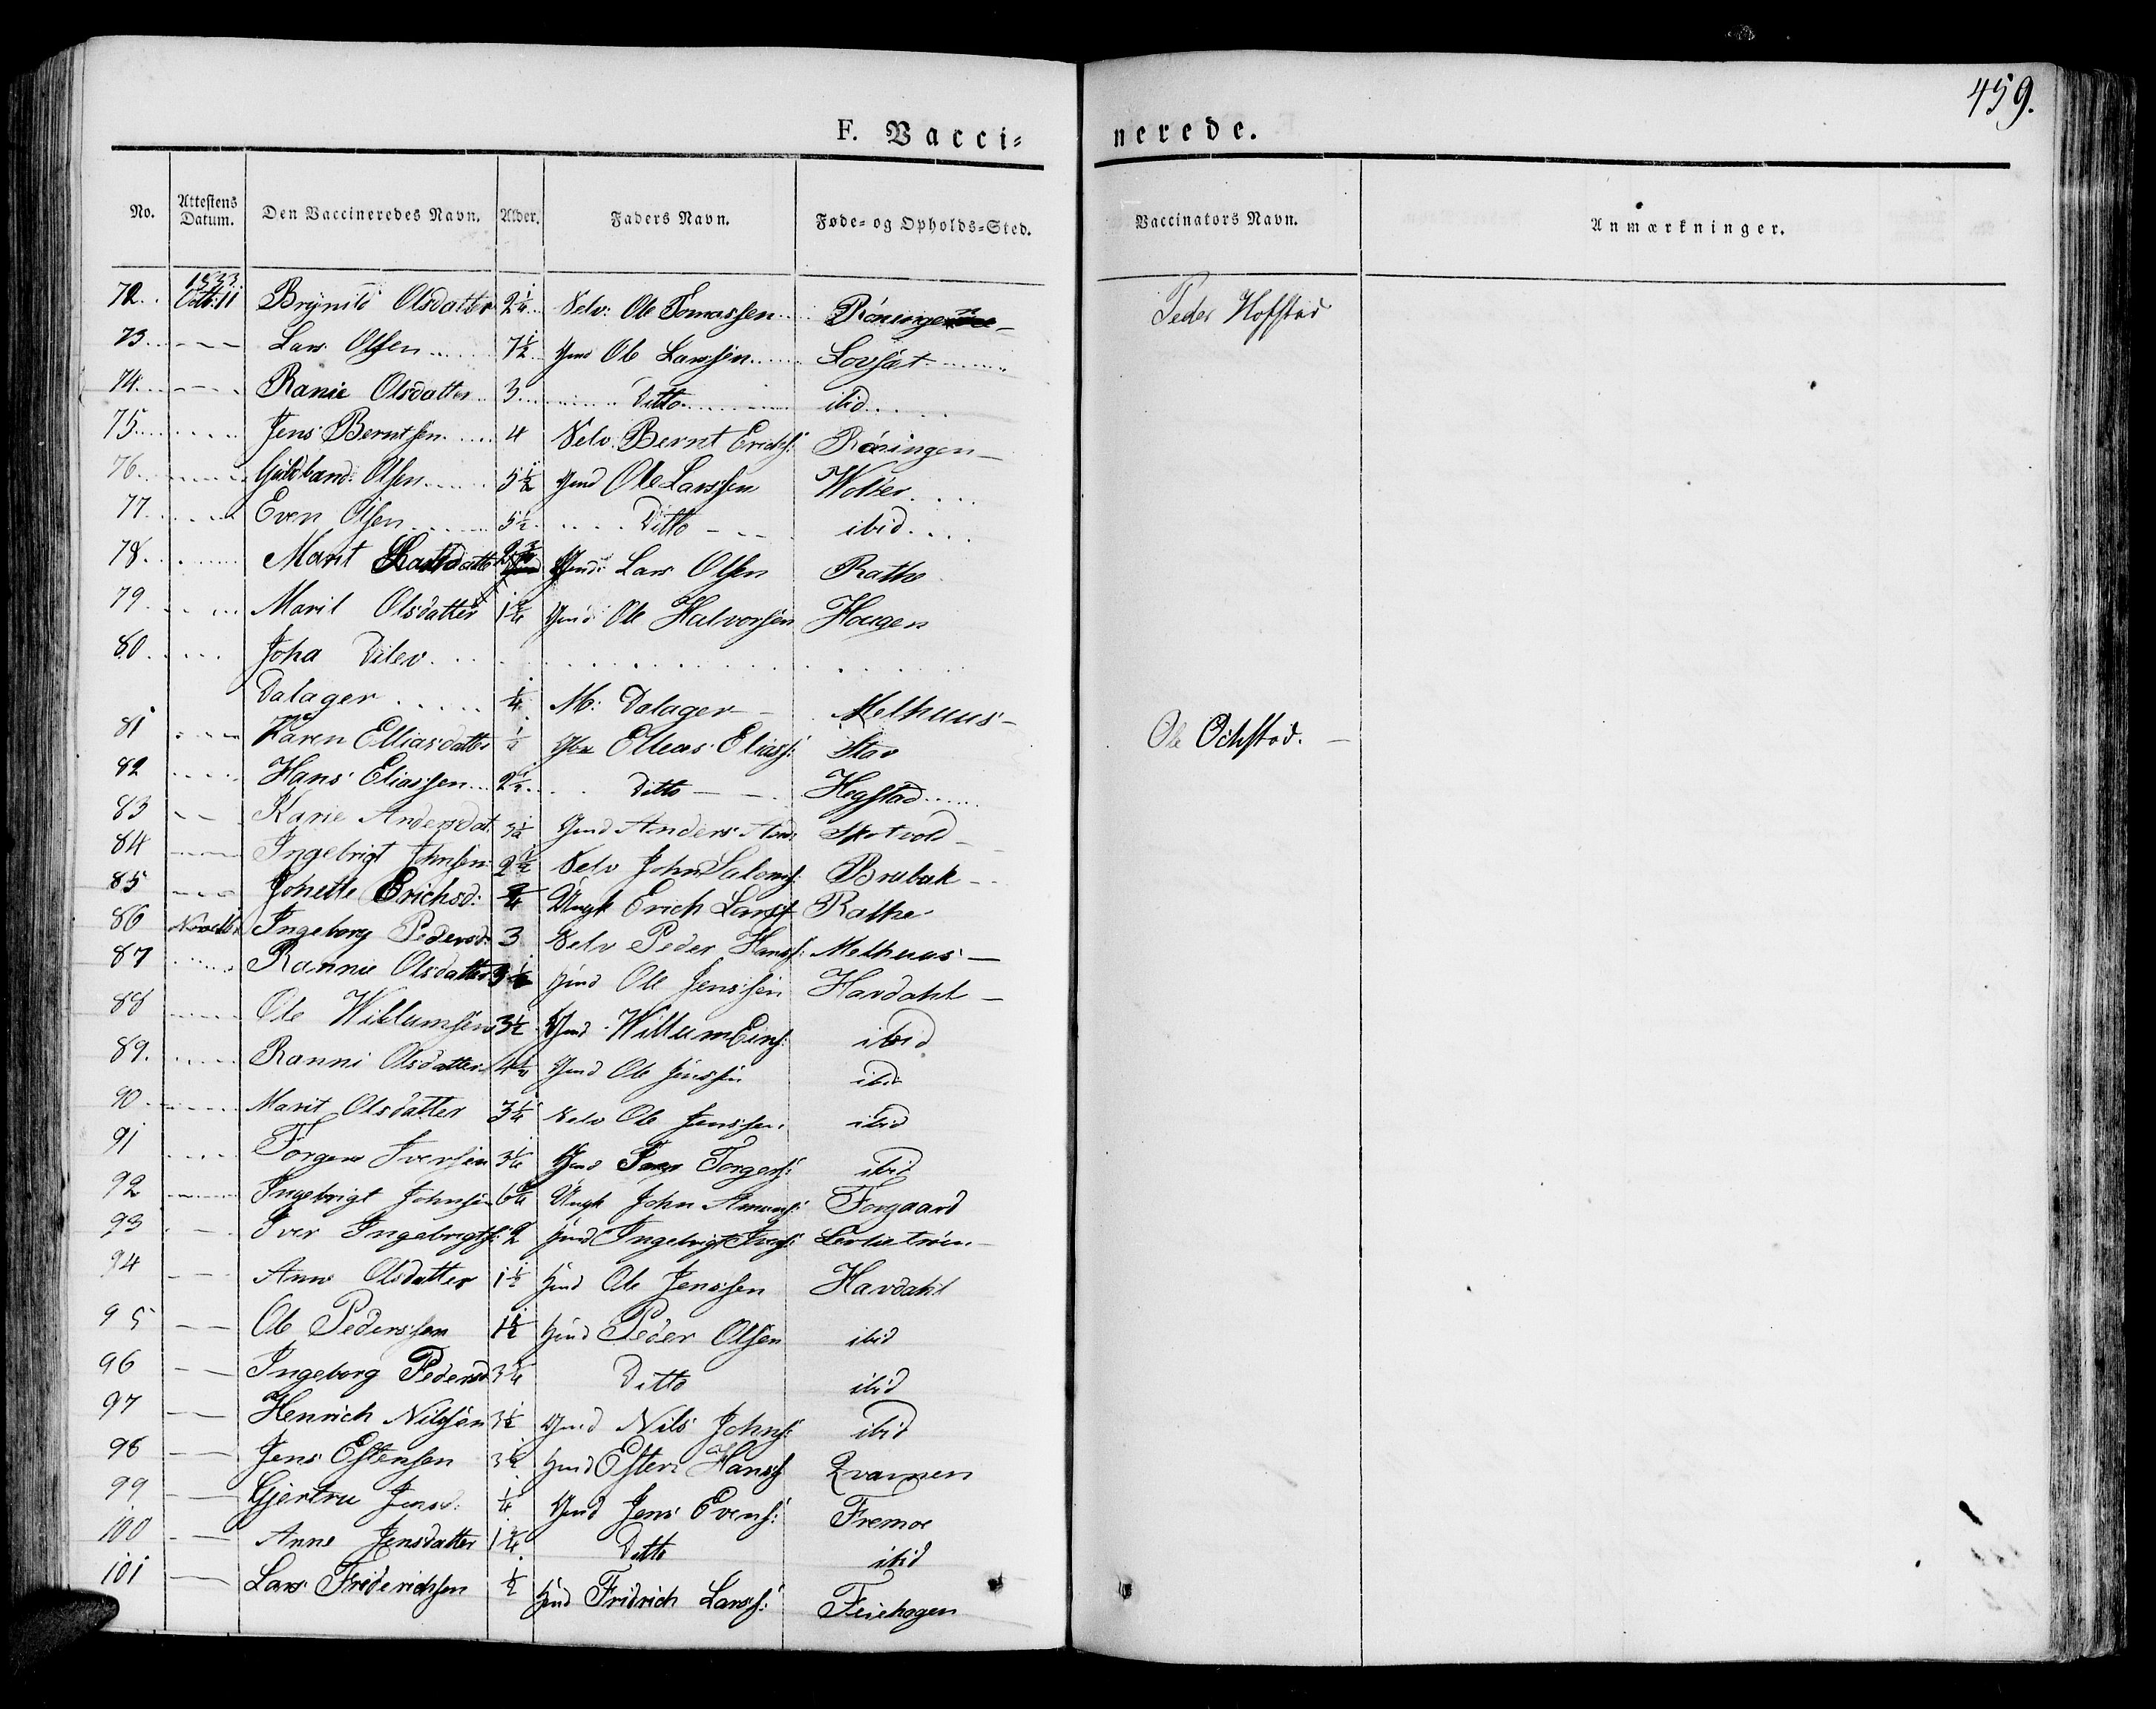 459.
F. Vacci=nerede.
No. Attestens Datum. Den Vaccineredes Navn. Alder. Faders Navn. Føde= og Opholds=Sted. Vaccinators Navn. Anmærkninger.
1833
72. Octb: 11 Brynild Olsdatter 2 1/4 Selv: Ole Tomassen Røningen Peder Hofstad
73. Lars Olsen 7 1/2 Gmd Ole Larssen Lovsæt
74. Ranie Olsdatter 3 Ditto ibid
75. Jens Berntsen 4 Selv: Bernt Erichs: Røningen
76. Guldbrand Olsen 5 1/2 Gmd Ole Larssen Wolléer
77. Even Olsen 5 1/2 Ditto ibid
78. Marit Larsdatter 2 3/4 Gmd: Lars Olsen Rathe
79. Marit Olsdatter 1 3/4 Gmd Ole Halvorsen Hougen
80. Joha Ditlev
Dalager 1/4 M: Dalager Melhuus
81 Karen Elliasdatter Elleas Eliass: Stav Ole Ochstad.
82 Hans Eliassen 2 1/2 Ditto Hogstad
83 Karie Andersdat: 3 1/4 Gmd Anders And: Skotvold
84 Ingebrigt Johnsen 2 1/2 Selv John Brubak
85 Johette Erichsd: Ungk Erich Larss Rathe
86 Novetbr Ingeborg Pedersd: 3 Selv Peder Hanss: Melhuus
87 Rannie Olsdatter Gmd Ole Jenssen Havdahl
88 Ole Willumsen 3 1/2 Gmd Willum Eins: ibid
89. Ranni Olsdatter Gmd Ole Jenssen ibid
90 Marit Olsdatter 3 1/4 Selv Ole Jenssen ibid
91 Torger Iversen 3 1/4 Gmd Iver Torgers: ibid
92 Ingebrigt Johnsen Ungk John Forgaard
93 Iver Ingebrigts: 2 Gmd Ingebrigt Ivers:
94 Ann Olsdatter 1 1/2 Gmd Ole Jenssen Havdahl
95 Ole Pederssen 1 1/2 Gmd Peder Olsen ibid
96 Ingeborg Pedersd 3 1/4 Ditto ibid
97 Henrich Nilssen 3 1/2 Gmd Nils Johns: ibid
98 Jens Estensen 3 1/2 Gmd Esten Hanss Qvamen
99 Gjertru Jensd: 1/4 Gmd Jens Evens: Fremoe
100 Anne Jensdatter Ditto ibid
101 Lars Friderichsen 1/2 Gmd Fridrich Larss: Feiehogen